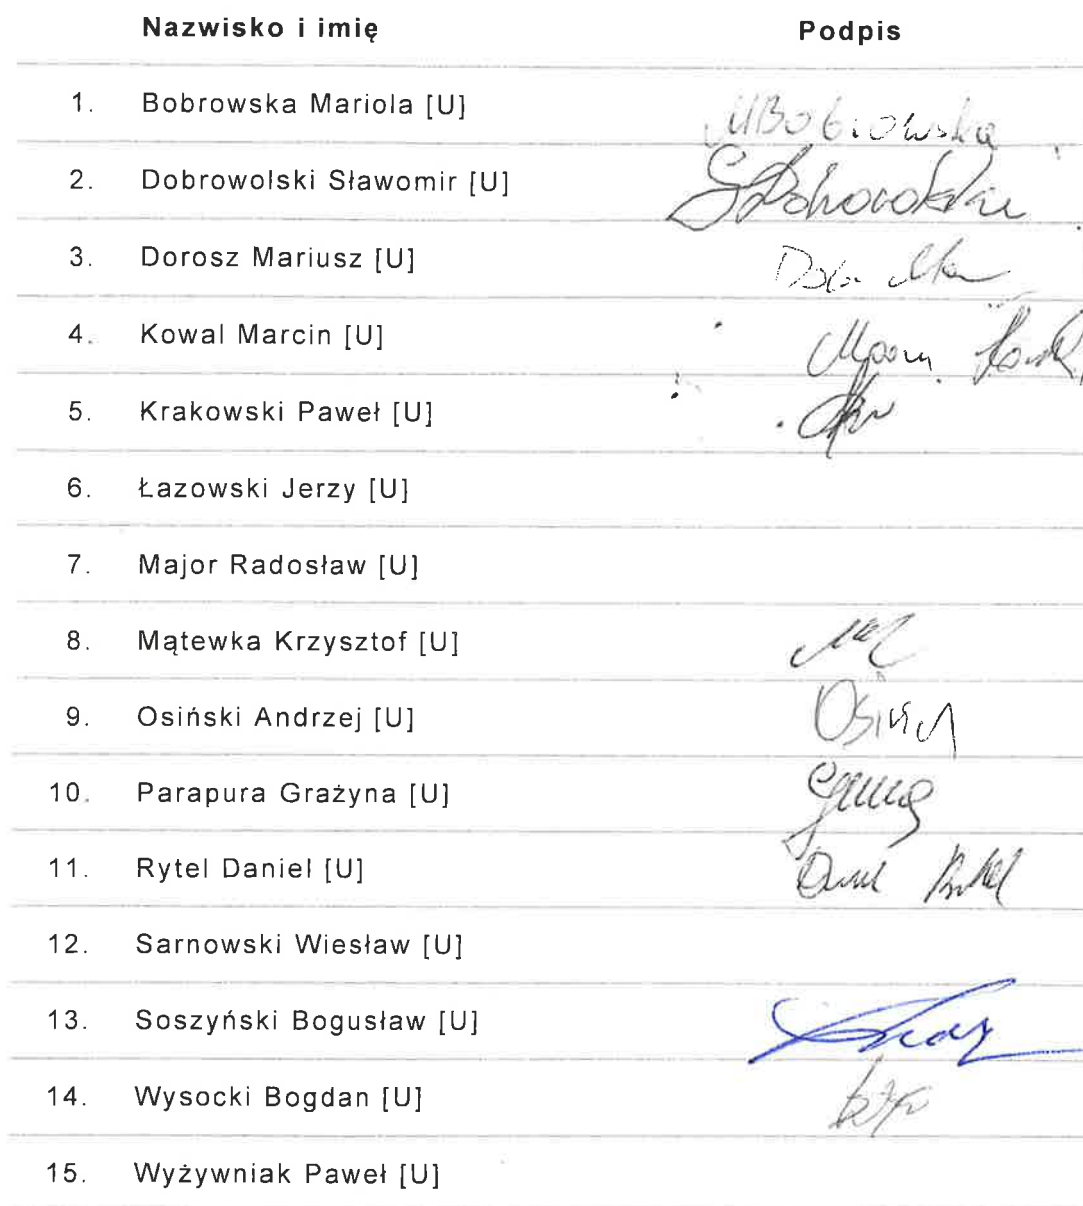 Nazwisko i imię Podpis
1. Bobrowska Mariola [U] MBobrowska
2. Dobrowolski Sławomir [U]
3. Dorosz Mariusz [U]
4. Kowal Marcin [U]
5. Krakowski Paweł [U]
6. Łazowski Jerzy [U]
7. Major Radosław [U]
8. Mątewka Krzysztof [U]
9. Osiński Andrzej [U]
10. Parapura Grażyna [U]
11. Rytel Daniel [U]
12. Sarnowski Wiesław [U]
13. Soszyński Bogusław [U]
14. Wysocki Bogdan [U]
15. Wyżywniak Paweł [U]